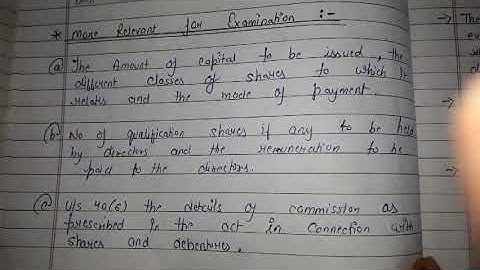 * More Relevant for Examination :-
(a) The Amount of capital to be issued, the
different classes of shares to which it
relates and the mode of payment.
(b) No of qualification shares if any to be held
by directors and the remuneration to be
paid to the directors.
(c) U/s 40(6) the details of commission as
prescribed in the act in Connection with
shares and debentures.
→ The
→
→